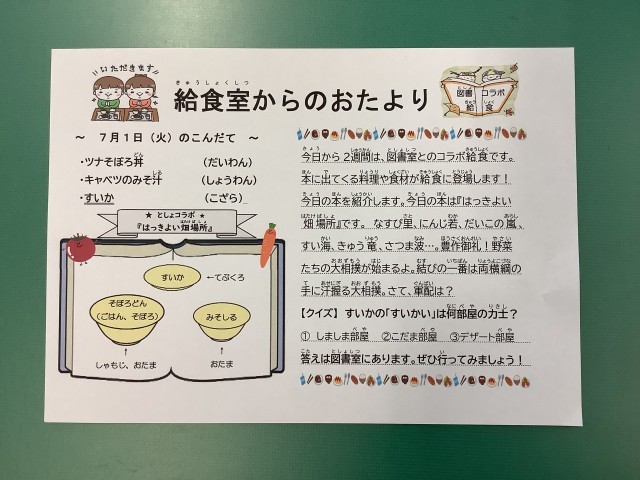 いただきます
給食室からのおたより
図書 コラボ
給食
～ 7月1日（火）のこんだて ～
・ツナそぼろ丼 （だいわん）
・キャベツのみそ汁 （しょうわん）
・すいか （こざら）
★ としょコラボ ★
『はっきよい畑場所』
すいか ←てぶくろ
そぼろどん
（ごはん、そぼろ）
みそしる
↑ ↑
しゃもじ、おたま おたま
今日から2週間は、図書室とのコラボ給食です。
本に出てくる料理や食材が給食に登場します！
今日の本を紹介します。今日の本は『はっきよい
畑場所』です。 なすび里、にんじ若、だいこの嵐、
すい海、きゅう竜、さつま波…。豊作御礼！野菜
たちの大相撲が始まるよ。結びの一番は両横綱の
手に汗握る大相撲。さて、軍配は？
【クイズ】 すいかの「すいかい」は何部屋の力士？
① しましま部屋 ②こだま部屋 ③デザート部屋
答えは図書室にあります。ぜひ行ってみましょう！